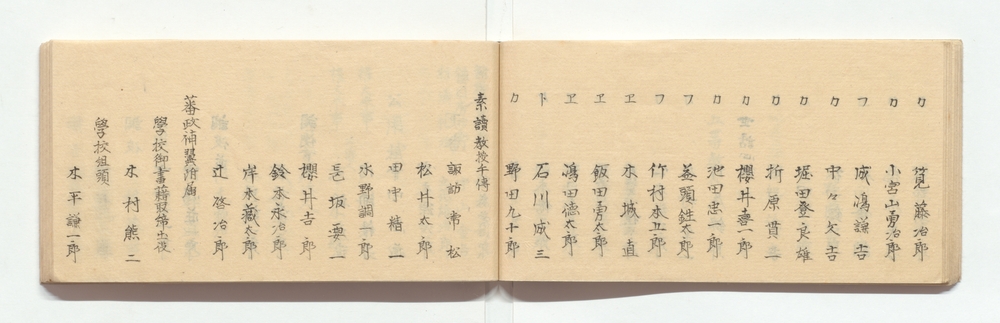 カ 筧藤治郎
カ 小宮山勇治郎
フ 成鴻謙吉
カ 中々文吉
カ 堀田登良雄
カ 折原貫二
カ 櫻井喜一郎
カ 池田忠一郎
フ 益頭鉎太郎
フ 竹村本五郎
ヱ 木城直
ヱ 飯田勇太郎
ヱ 鴻田德太郎
ト 石川成三
カ 野田九十郎
素讀教授手傳
諏訪常松
松井太郎
田中楯二
水野調一郎
長坂要一
櫻井吉郎
鈴木永治郎
岸本藏太郎
辻啓治郎
蕃政補翼附屬
學校御書籍取締出役
木村熊二
學校組頭
木平謙一郎